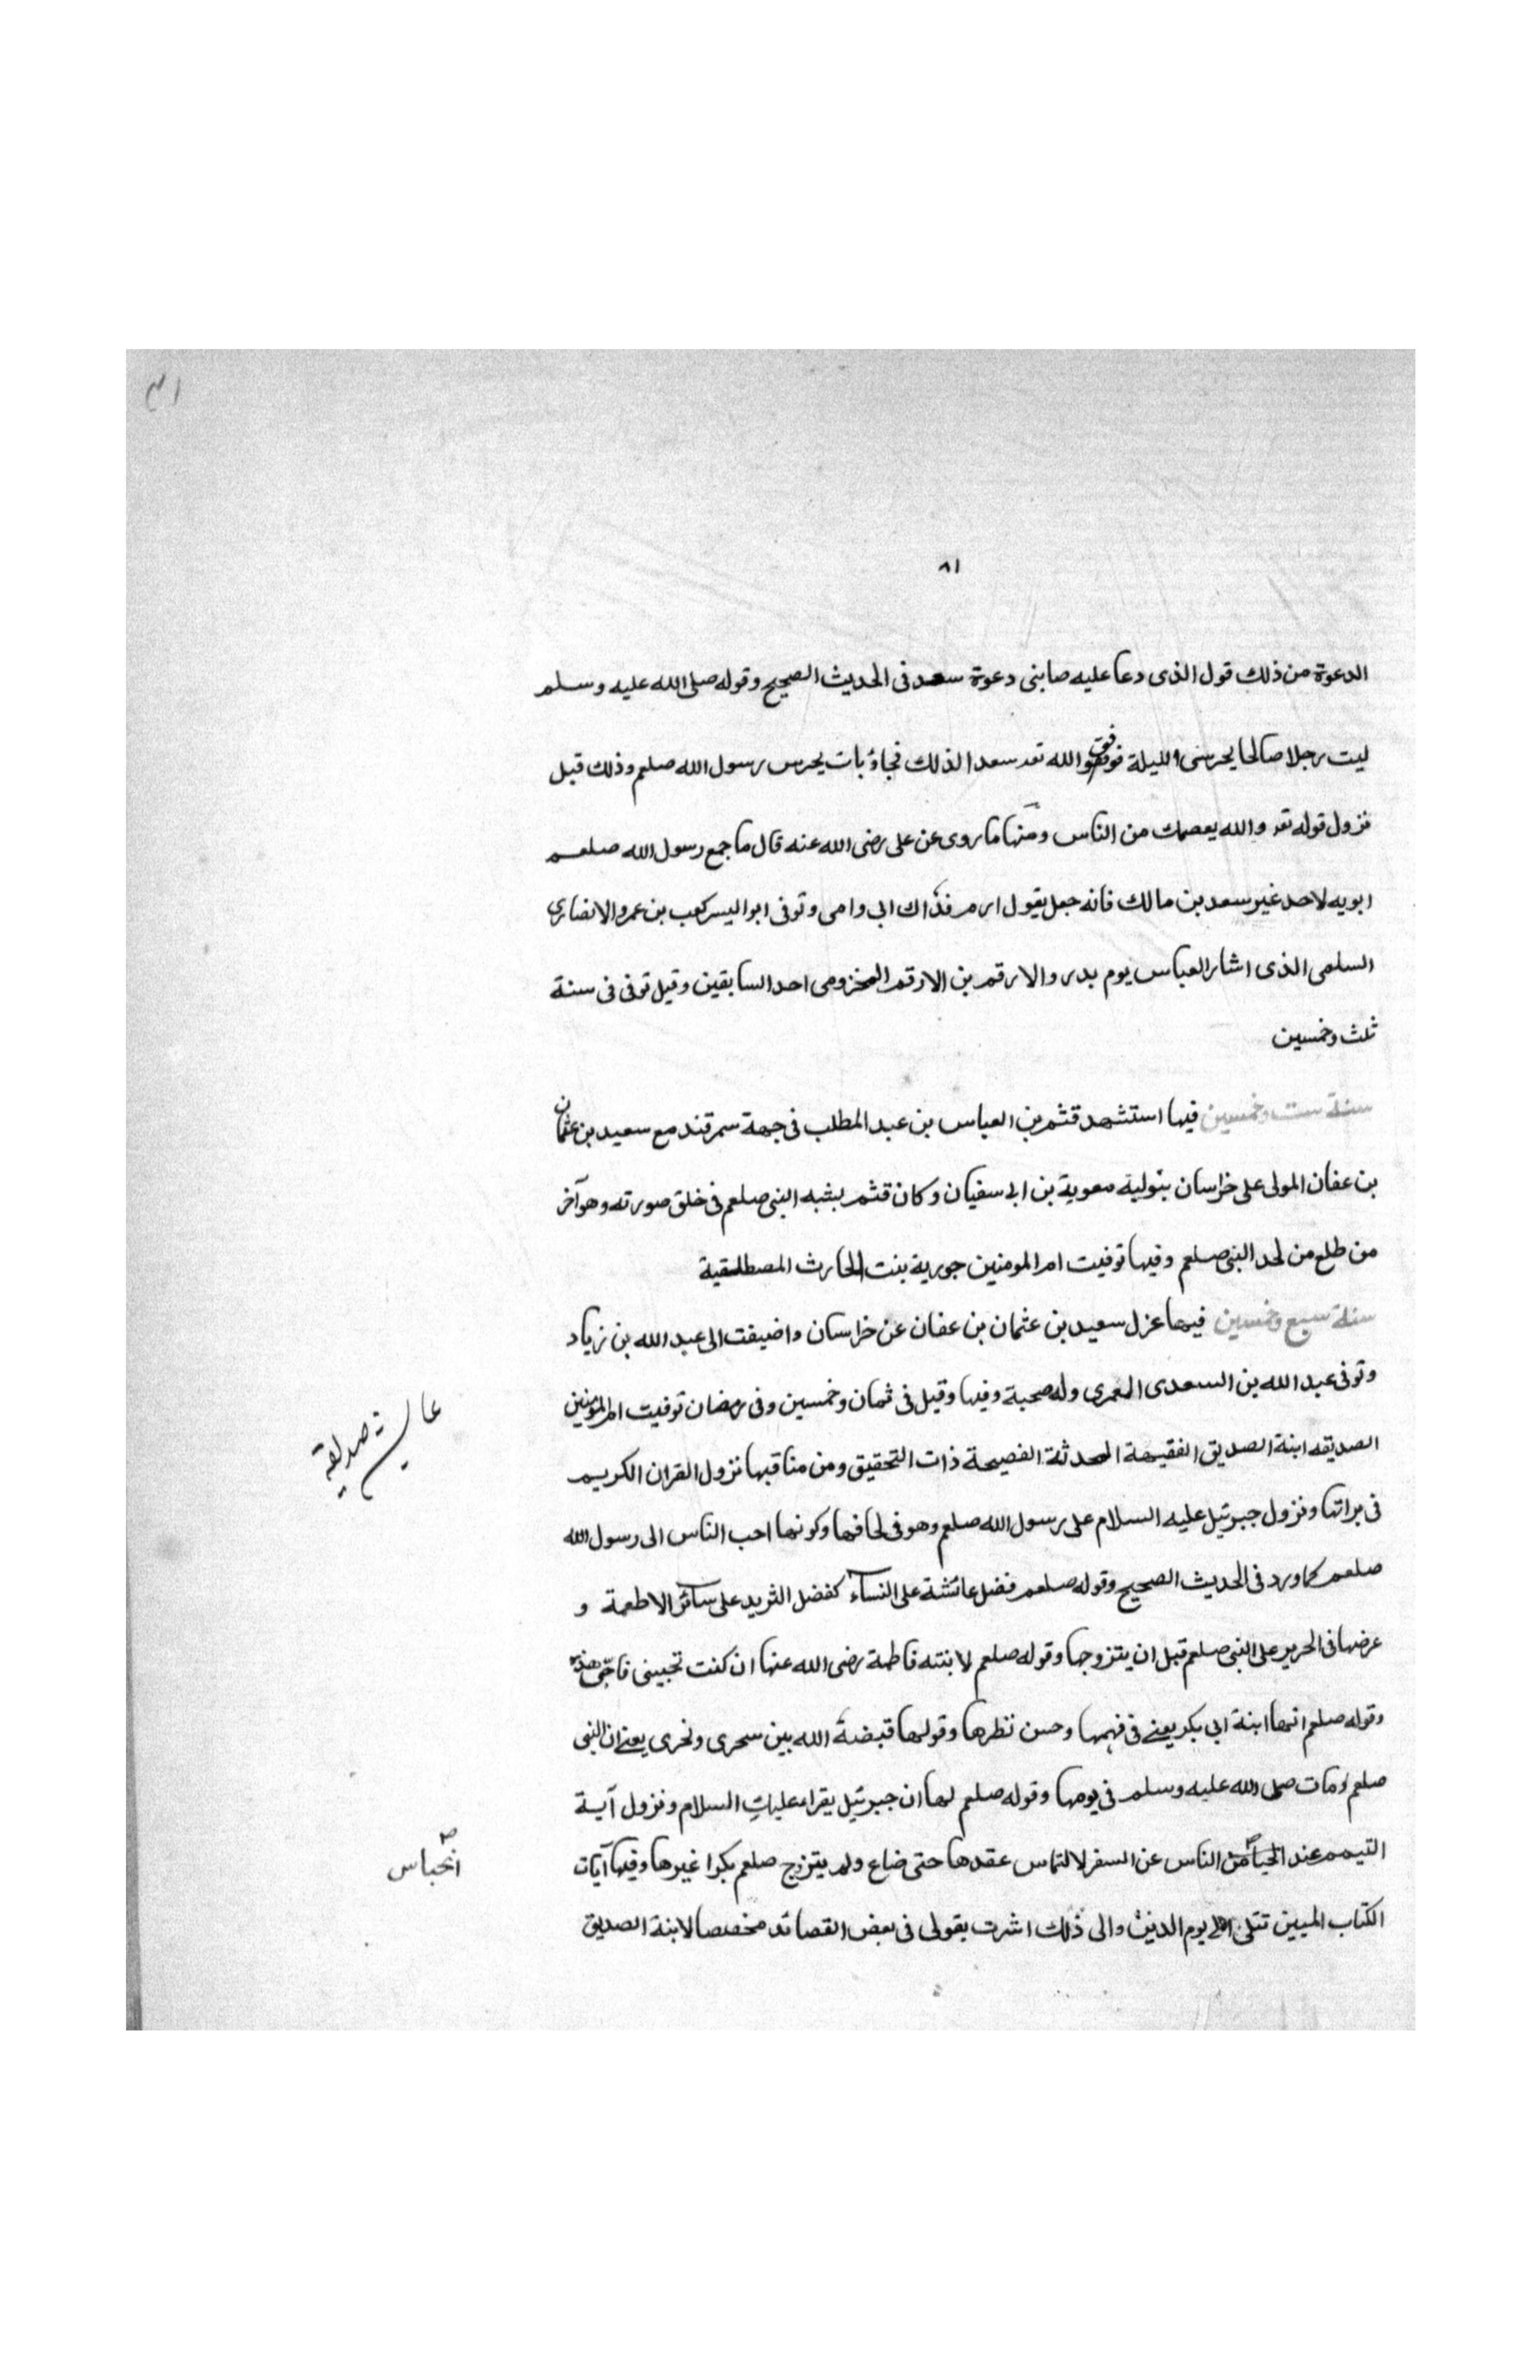 ٨١
الدعوة من ذلك قول الذى دعا عليه صابنى دعوة سعد فى الحديث الصحيح وقوله صلى الله عليه وسلم
ليت رجلا صالحا يحرسنى الليلة فوفق الله تعـ سعدا لذلك فجاءٔ بات يحرس رسول الله صلعم وذلك قبل
نزول قوله تعـ والله يعصمك من الناس ومنها ما روى عن على رضى الله عنه قال ما جمع رسول الله صلعم
ابويه لاحد غير سعد بن مالك فانه جعل يقول ارم فداك ابى وامى وتوفى ابو اليسر كعب بن عمرو الانصارى
السلمى الذى اشار العباس يوم بدر والارقم بن الارقم المخزومى احد السابقين وقيل توفى فى سنة
ثلث وخمسين
سنة ست وخمسين فيها استشهد قثم بن العباس بن عبد المطلب فى جهة سمرقند مع سعيد بن عثمان
بن عفان المولى على خراسان بتولية معوية بن ابى سفيان وكان قثم يشبه النبى صلعم فى خلق صورته وهو آخر
من طلع من لحد النبى صلعم وفيها توفيت ام المومنين جورية بنت الحارث المصطلقية
سنة سبع وخمسين فيها عزل سعيد بن عثمان بن عفان عن خراسان واضيفت الى عبد الله بن زياد
وتوفى عبد الله بن السعدى العمرى وله صحبة وفيها وقيل فى ثمان وخمسين وفى رمضان توفيت ام المومنين
الصديقه ابنة الصديق الفقيهة المحدثة الفصيحة ذات التحقيق ومن مناقبها نزول القران الكريم
فى براتها ونزول جبرئيل عليه السلام على رسول الله صلعم وهو فى لحافها وكونها احب الناس الى رسول الله
صلعم كما ورد فى الحديث الصحيح وقوله صلعم فضل عائشة على النساء كفضل الثريد على سائر الاطعمة و
عرضها فى الحرير على النبى صلعم قبل ان يتزوجها وقوله صلعم لابنته فاطمة رضى الله عنها ان كنت تحبينى فاحبّى هذه
وقوله صلعم انها ابنة ابى بكر يعنى فى فهمها وحسن نظرها وقولها قبضهٔ الله بين سحرى ونحرى يعنى ان النبى
صلعم مات صلى الله عليه وسلم فى يومها وقوله صلعم لها ان جبرئيل يقراء عليكِ السلام ونزول آية
التيمم عند الناس عن السفر لالتماس عقدها حتى ضاع ولم يتزوج صلعم بكرا غيرها وفيها آيات
الكتاب المبين تتلى الى يوم الدين والى ذلك اشرت بقولى فى بعض القصائد مخصصا لابنة الصديق
عائشة صديقه
انحباس